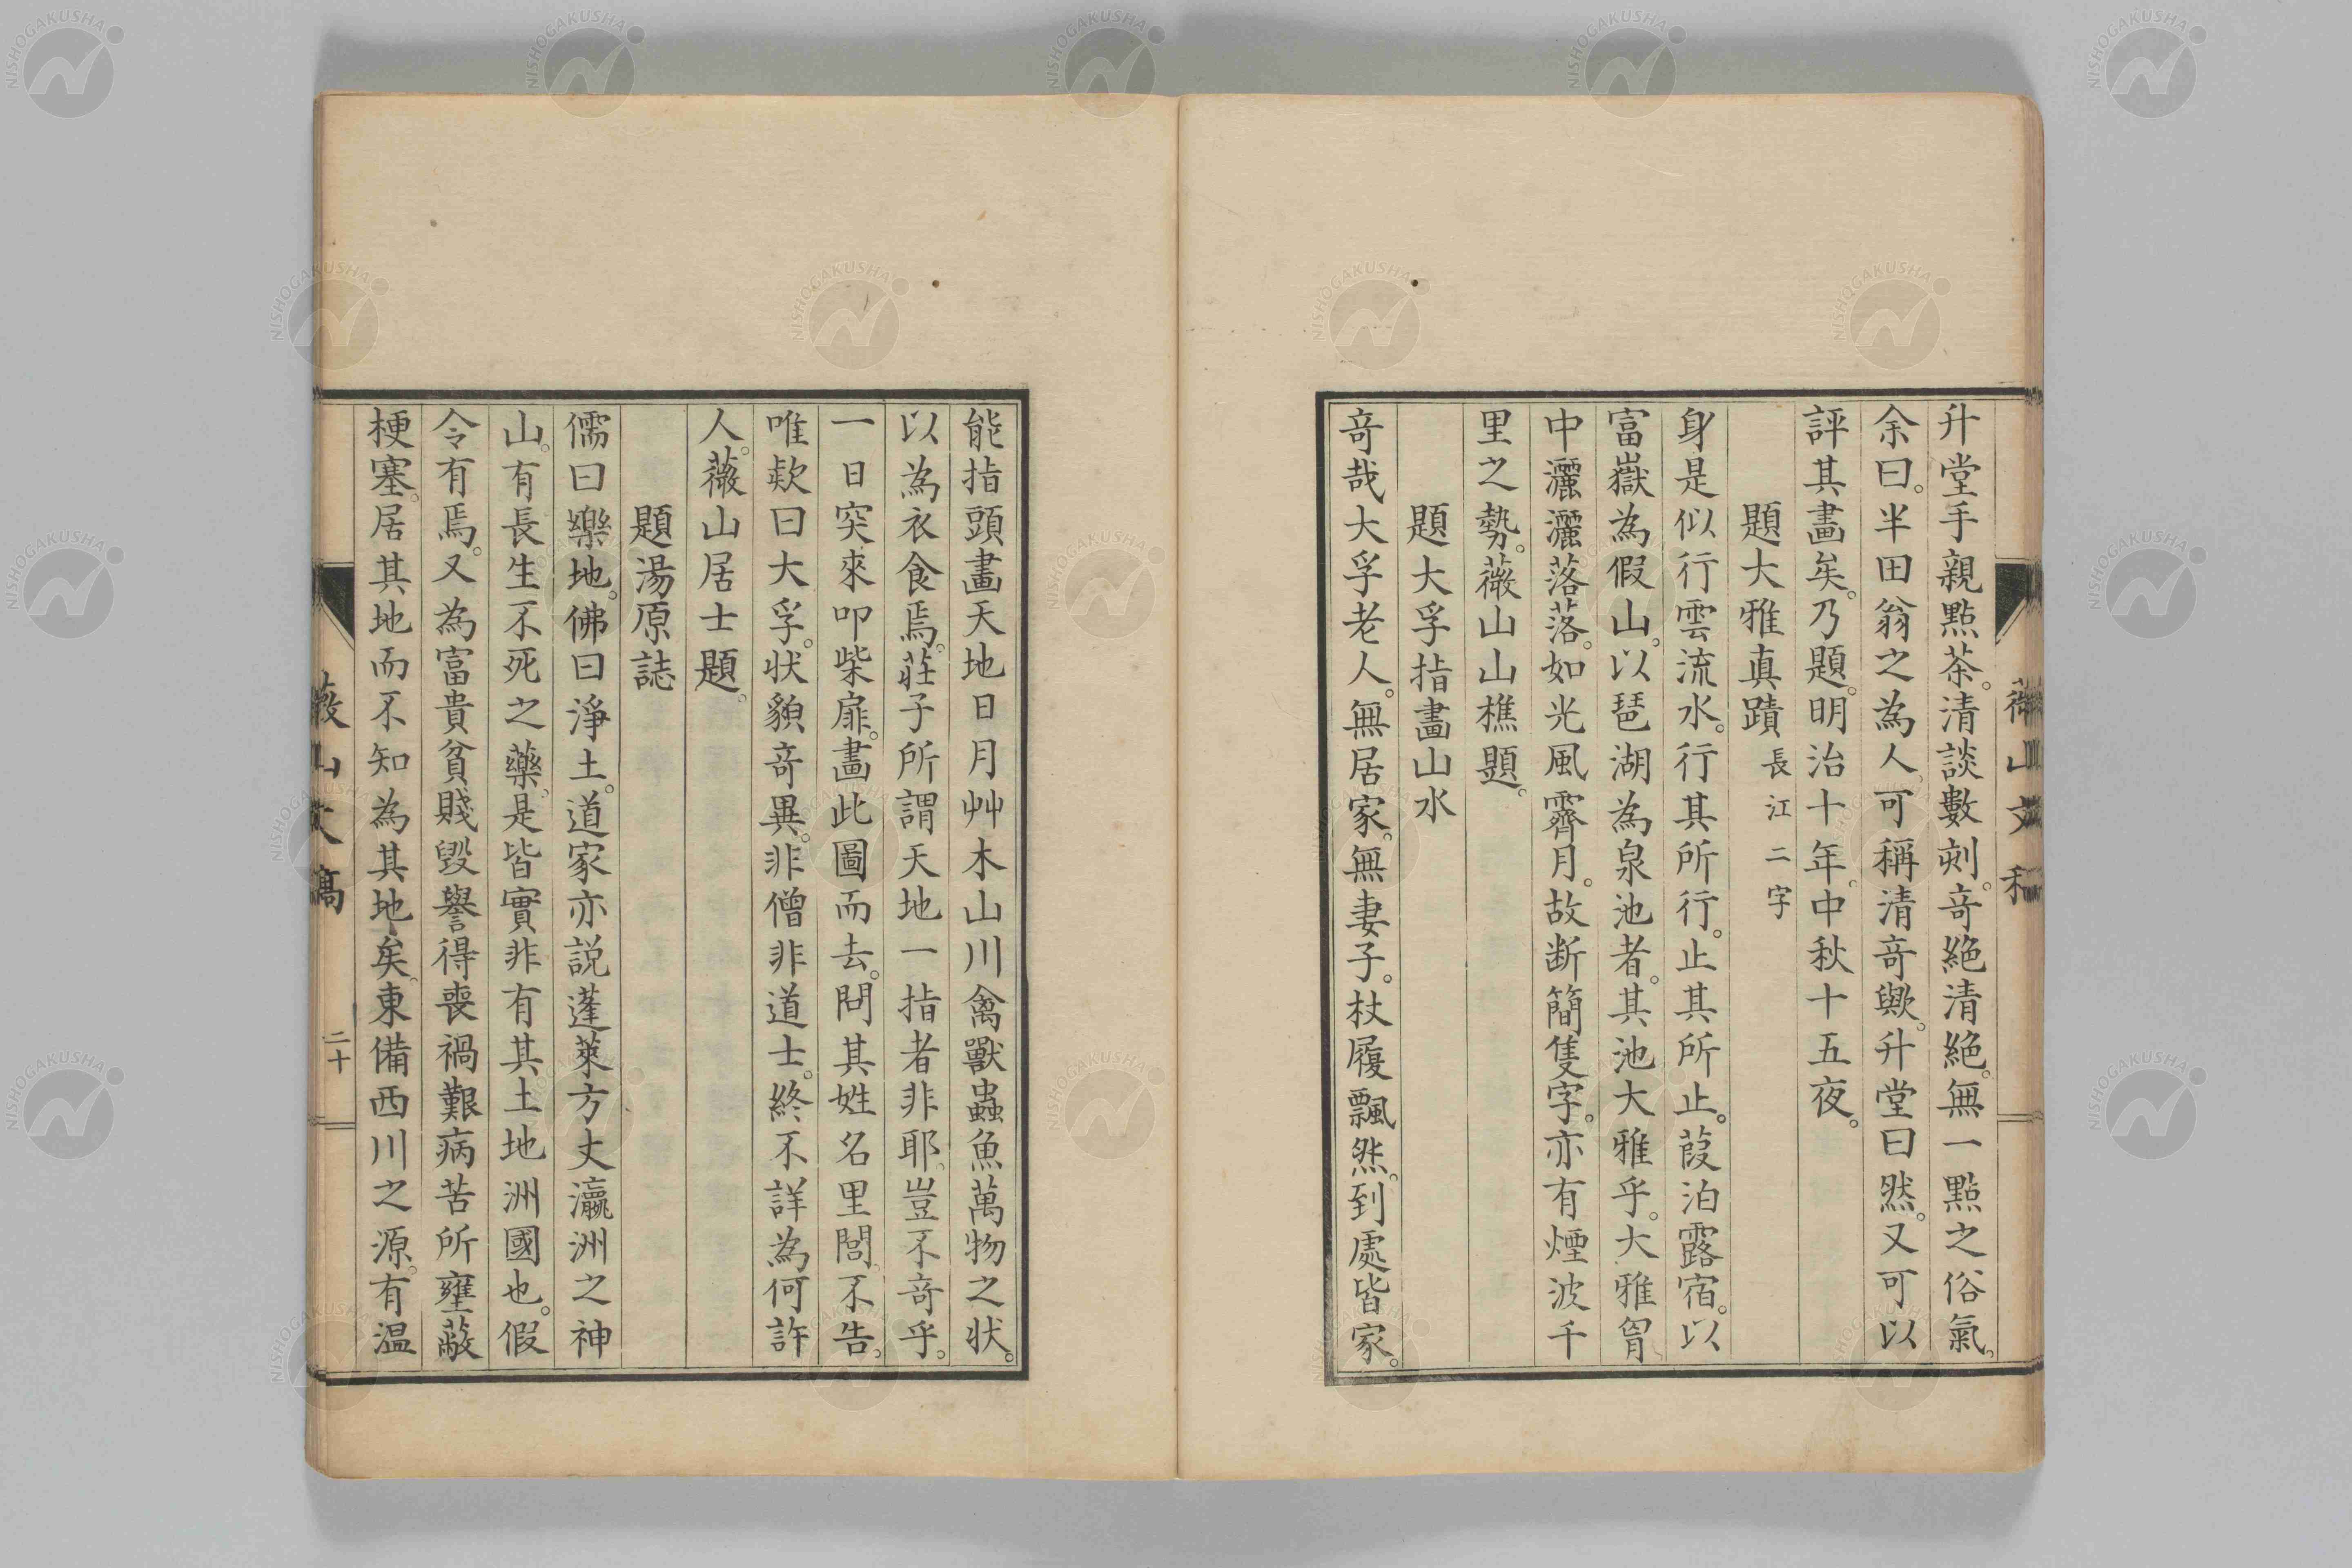 升堂手親點茶。清談數刻。竒絶清絶。無一點之俗氣。
余曰。半田翁之為人。可稱清竒歟。升堂曰然。又可以
評其畫矣。乃題。明治十年。中秋十五夜。
題大雅真蹟 長江二字
身是似行雲流水。行其所行。止其所止。葭泊露宿。以
富嶽為假山。以琶湖為泉池者。其池大雅乎。大雅胷
中灑灑落落。如光風霽月。故断簡隻字。亦有煙波千
里之勢。薇山山樵題。
題大孚指畫山水
竒哉大孚老人。無居家。無妻子。杖履飄然。到處皆家。
能指頭畫天地日月艸木山川禽獸蟲魚萬物之状。
以為衣食焉。莊子所謂天地一指者非耶。豈不竒乎。
一日突來叩柴扉。畫此圖而去。問其姓名里閭。不告。
唯欵曰大孚。状貌竒異。非僧非道士。終不詳為何許
人。薇山居士題。
題湯原誌
儒曰樂地。佛曰淨土。道家亦説蓬萊方丈瀛洲之神
山。有長生不死之藥。是皆實非有其土地洲國也。假
令有焉。又為富貴貧賤毀譽得喪禍艱病苦所壅蔽
梗塞。居其地而不知為其地矣。東備西川之源。有温
薇山文稿
二十
NISHOGAKUSHA